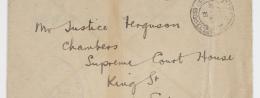 Mr Justice Ferguson
Chambers
Supreme Court House
King St